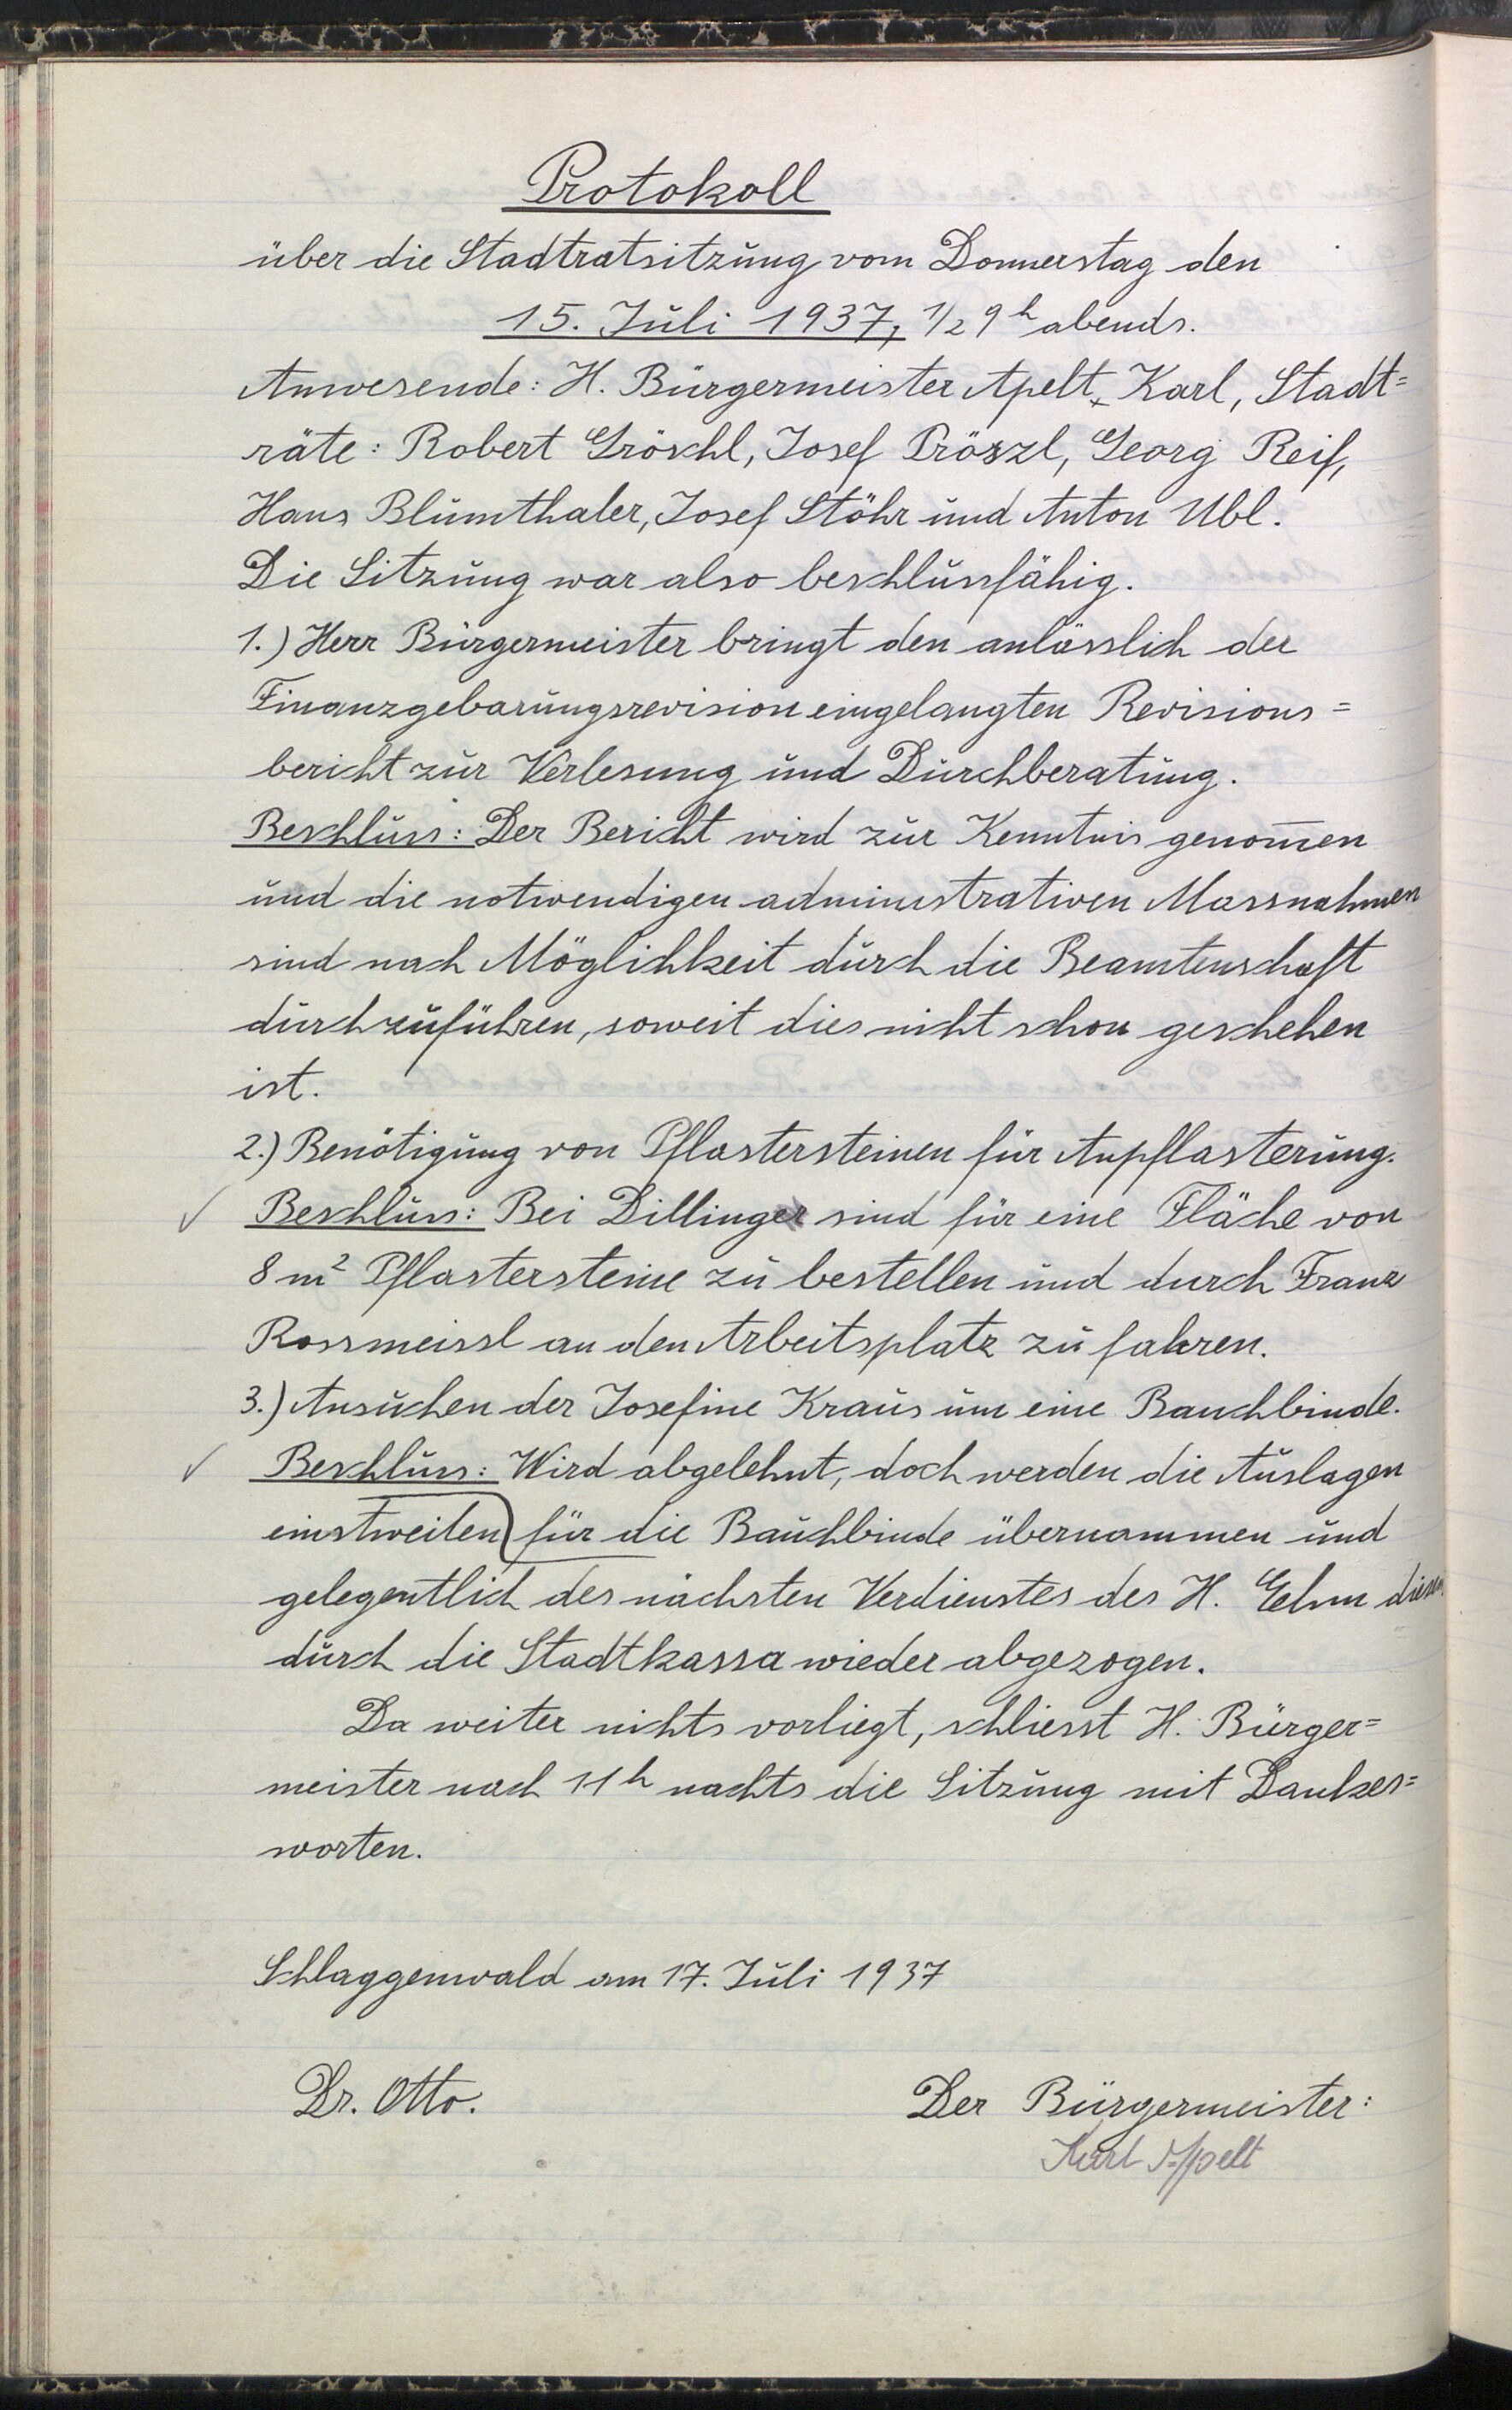 Protokoll
über die Stadtratsitzung vom Donnerstag den
15. Juli 1937, 1/2 9h abends.
Anwesende: H. Bürgermeister Apelt, Karl, Stadt=
räte: Robert Gröschl, Josef Pröszl, Georg Reif,
Hans Blumthaler, Josef Stöhr und Anton Ubl.
Die Sitzung war also beschlussfähig.
1.) Herr Bürgermeister bringt den anlässlich der
Finanzgebarungsrevision eingelangten Revisions=
bericht zur Verlesung und Durchberatung.
Beschluss: Der Bericht wird zur Kenntnis genom̅en
und die notwendigen administrativen Massnahmen
sind nach Möglichkeit durch die Beamtenschaft
durchzuführen, soweit dies nicht schon geschehen
ist.
2.) Benötigung von Pflastersteinen für Anpflasterung.
✓ Beschluss: Bei Dillinger sind für eine Fläche von
8 m² Pflastersteine zu bestellen und durch Franz
Rossmeissl an den Arbeitsplatz zu fahren.
3.) Ansuchen der Josefine Kraus um eine Bauchbinde.
✓ Beschluss: Wird abgelehnt, doch werden die Auslagen
einstweilen für die Bauchbinde übernammen und
gelegentlich des nächsten Verdienstes des H. Gehm diesem
durch die Stadtkassa wieder abgezogen.
Da weiter nichts vorliegt, schliesst H. Bürger=
meister nach 11h nachts die Sitzung mit Dankes=
worten.
Schlaggenwald am 17. Juli 1937
Dr. Otto. Der Bürgermeister:
Karl Apelt